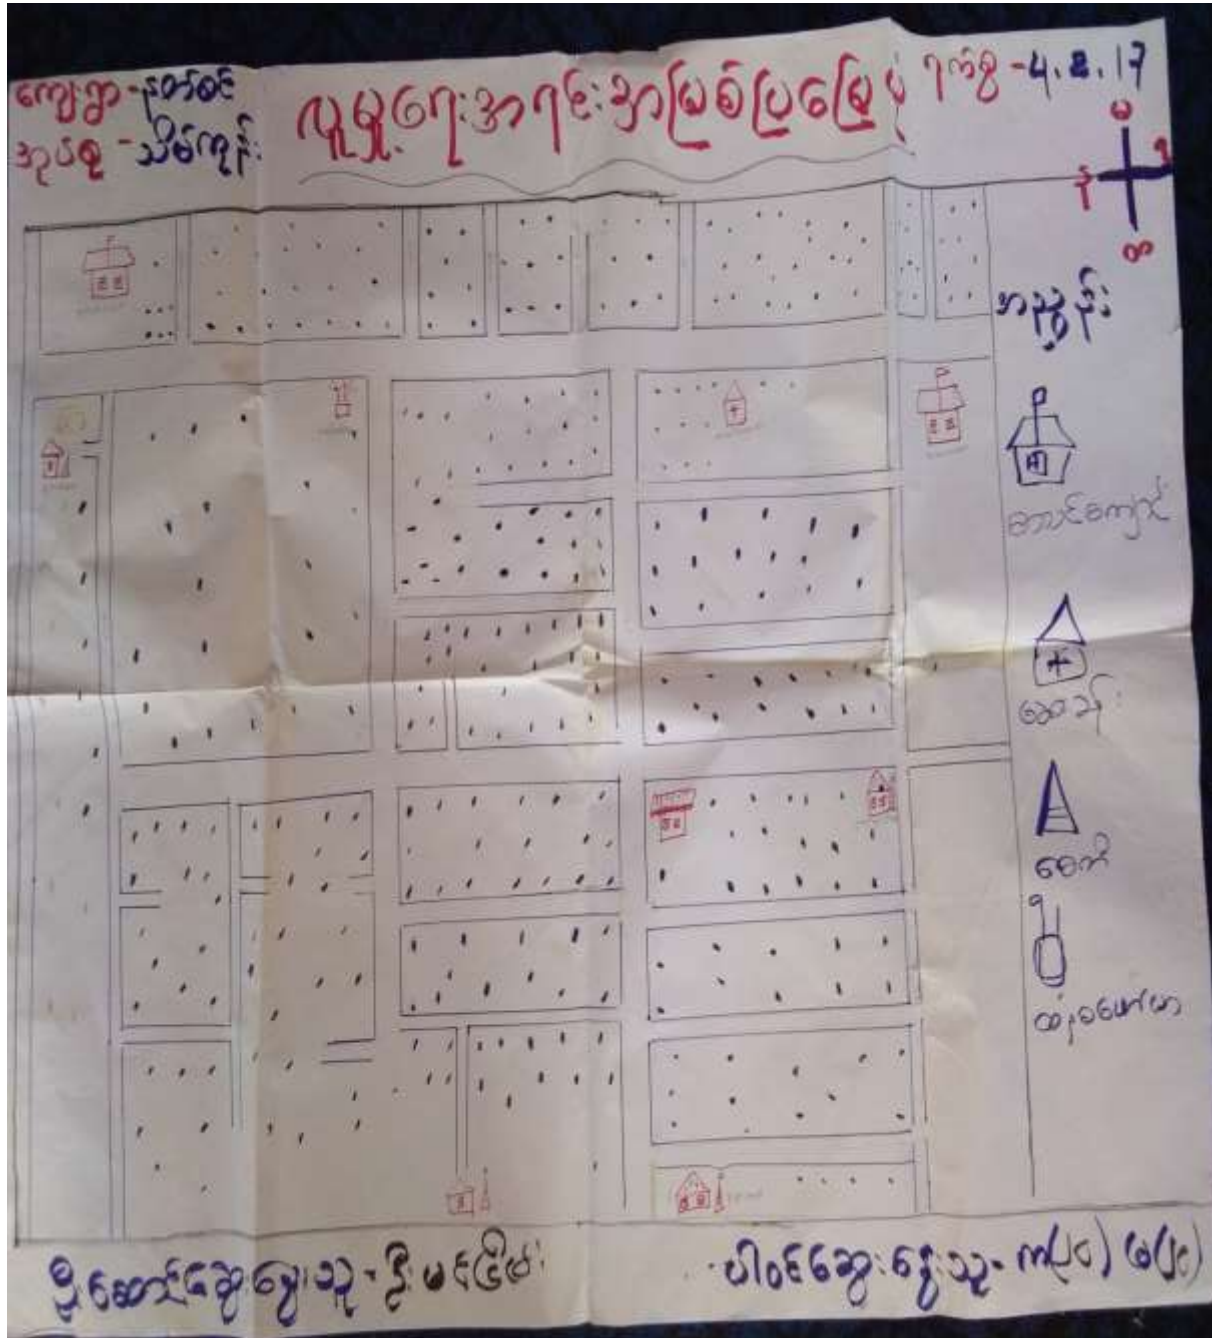 ကျေးရွာ - နတ်စင်
အုပ်စု - သိမ်ကုန်း
လူမှုရေးအရင်းအမြစ်ပြမြေပုံ
ရက်စွဲ - 4.2.17
မ
န
တ
အညွှန်း
စာသင်ကျောင်း
ဆေးခန်း
စေတီ
ဦးဆောင်ဆွေးနွေးသူ - ဦးမင်းငြိမ်း
ပါဝင်ဆွေးနွေးသူ -